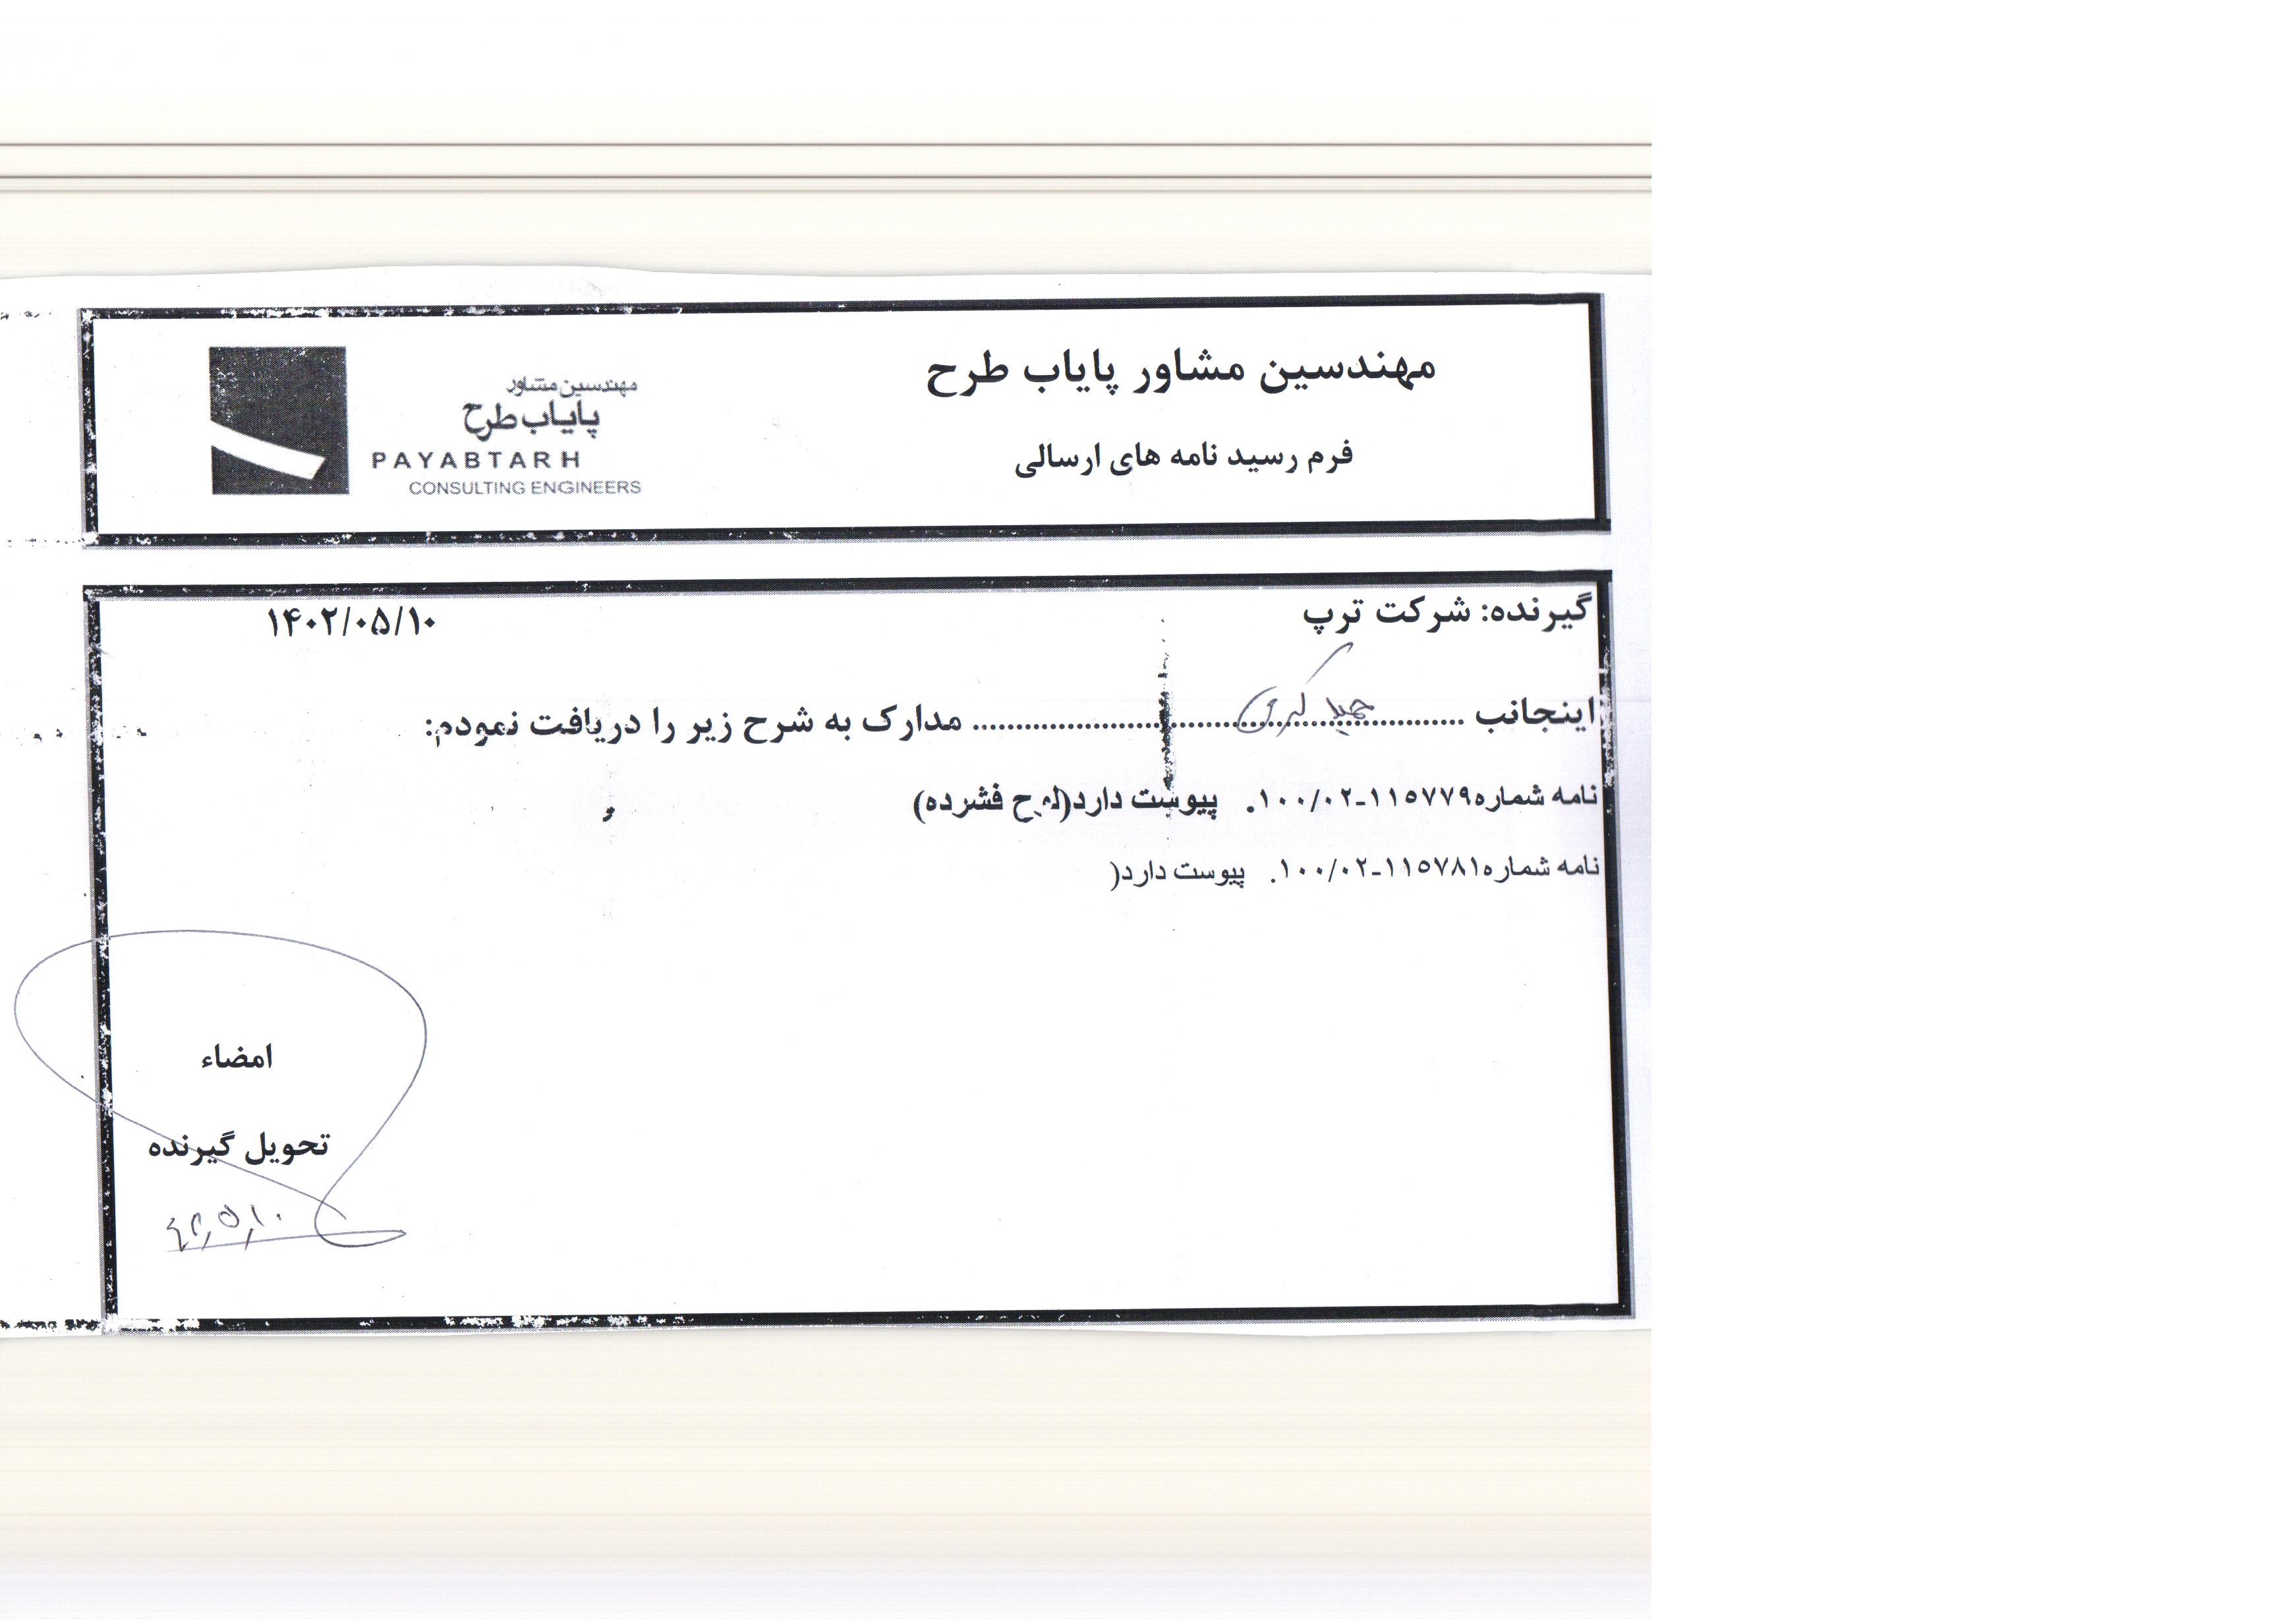 مهندسین مشاور پایاب طرح
فرم رسید نامه های ارسالی
مهندسین مشاور
پایاب طرح
PAYABTARH
CONSULTING ENGINEERS
گیرنده: شرکت ترپ
۱۴۰۲/۰۵/۱۰
اینجانب ........................ مدارک به شرح زیر را دریافت نمودم:
نامه شماره۱۱۵۷۷۹-۱۰۰/۰۲. پیوست دارد(لوح فشرده)
نامه شماره۱۱۵۷۸۱-۱۰۰/۰۲. پیوست دارد(
امضاء
تحویل گیرنده